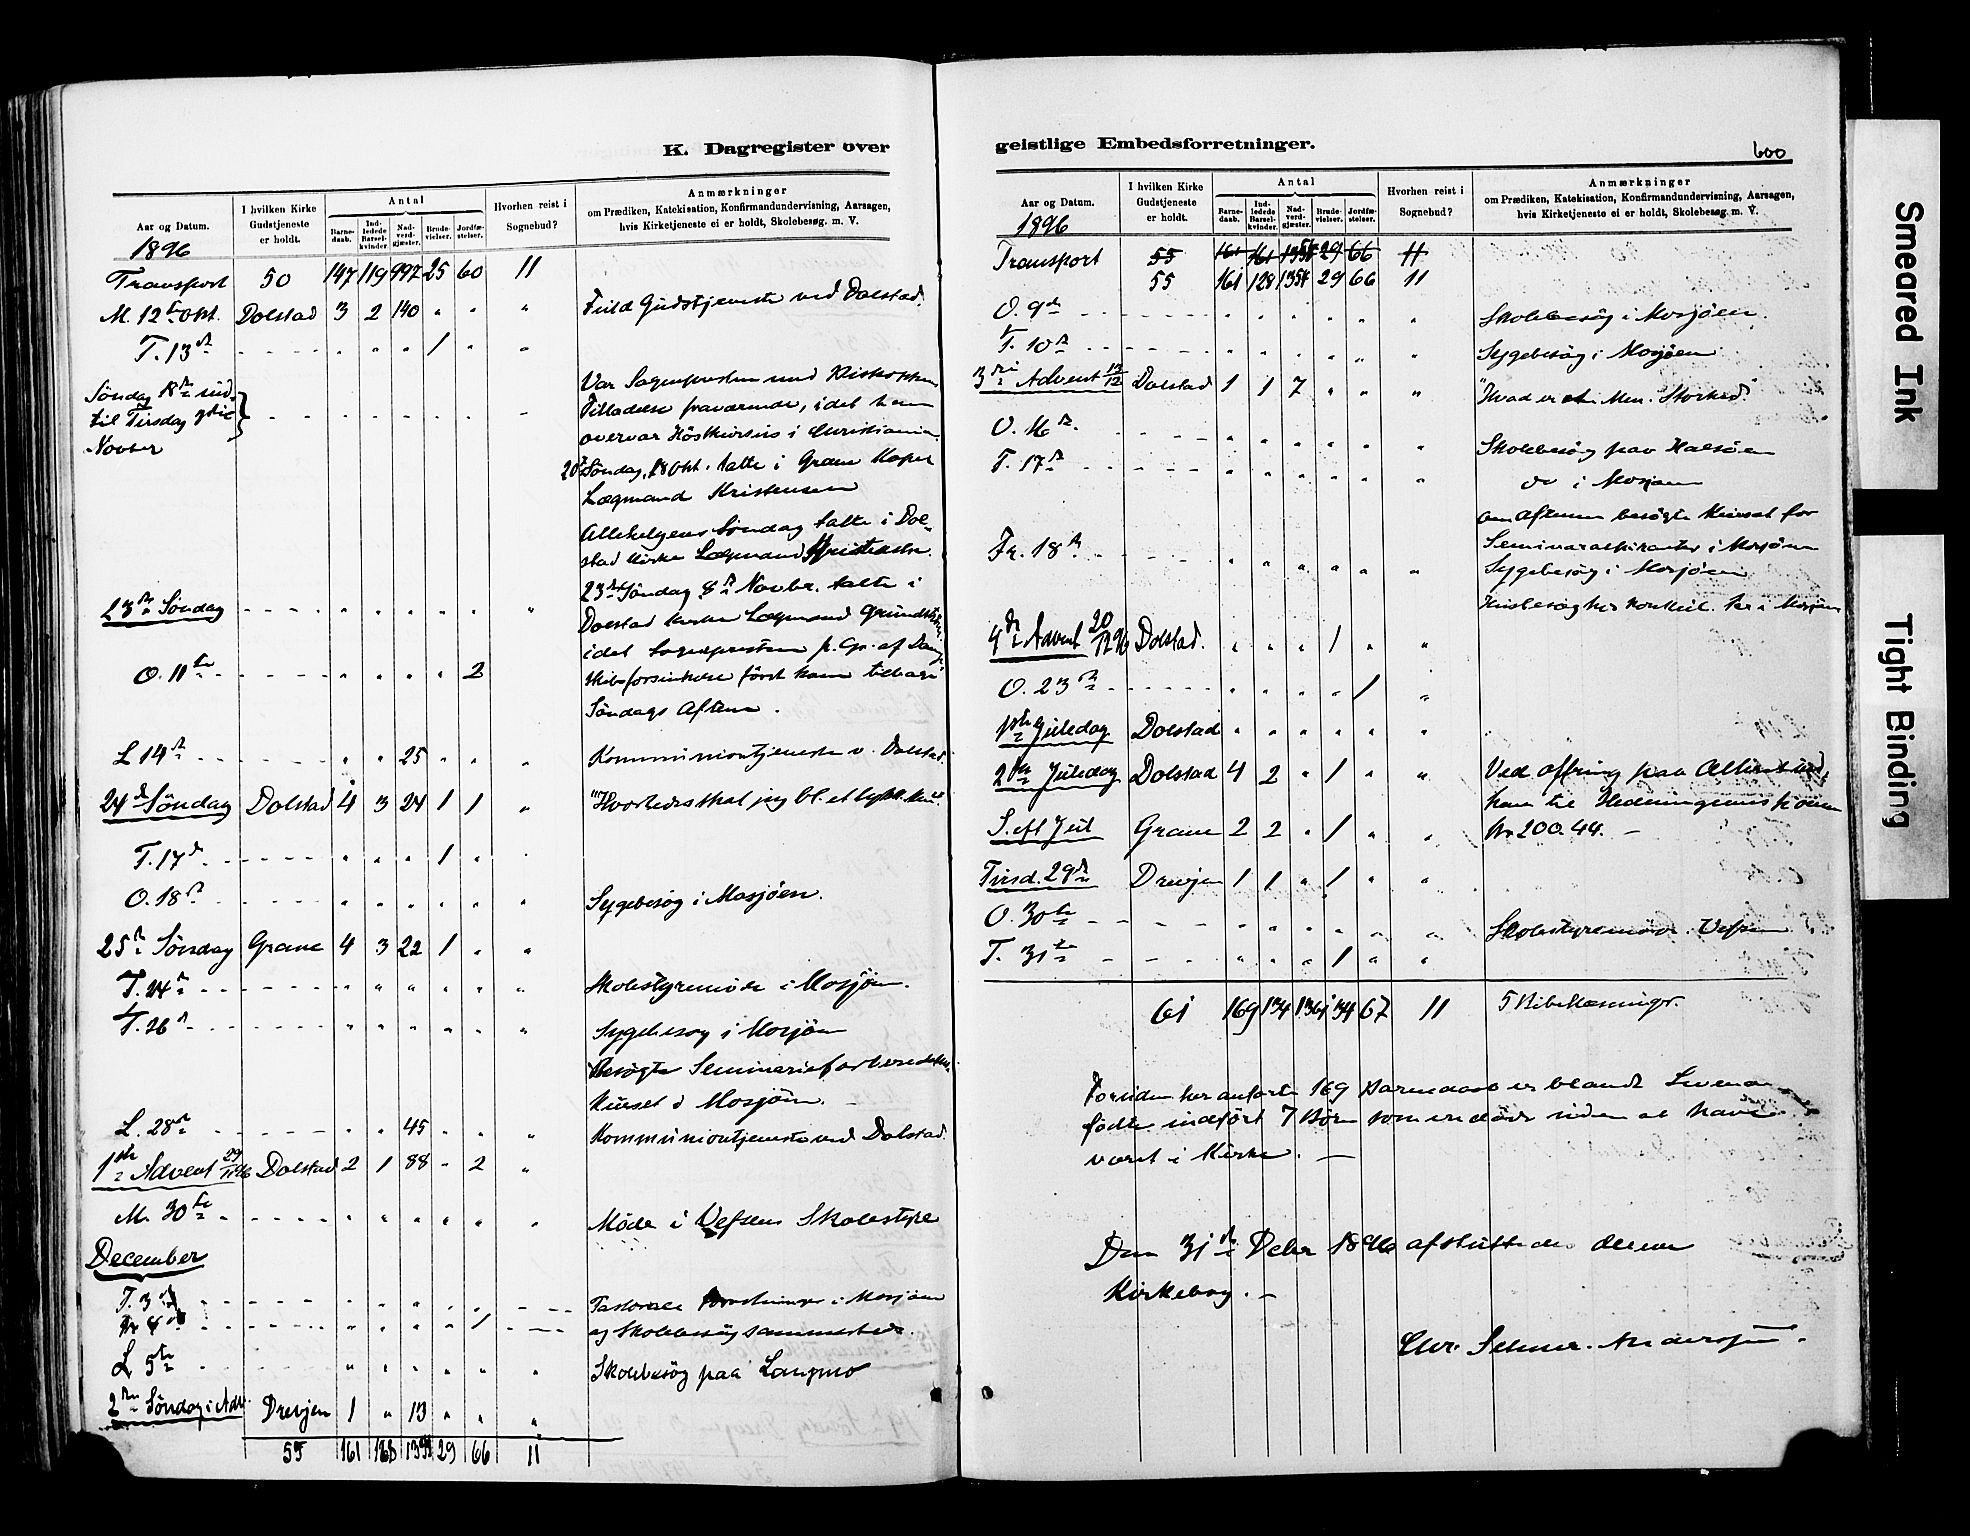 K. Dagregister over
Aar og Datum.
1896
I hvilken Kirke Gudstjeneste er holdt.
Antal
Barne-daab.
Ind-ledede Barsel-kvinder.
Nad-verd-gjæster.
Brude-vielser.
Jordfæ-stelser.
Hvorhen reist i Sognebud?
Anmærkninger
om Prædiken, Katekisation, Konfirmandundervisning, Aarsagen,
hvis Kirketjeneste ei er holdt, Skolebesøg. m. V.
Transport 50 147 119 997 25 60 11
M. 12te Okt. Dolstad 3 2 140 " " " Fuld Gudstjeneste ved Dolstad.
T. 13de - - - - " " " 1 " "
Søndag 18de
til Tirsdag
Novber
Var Sognepresten med Biskoppens
Tilladelse fraværende, idet han
overvar Høstkursus i Christiania.
20de Søndag, 18 Okt. talte i Grane Kapel
Lægmand Kristensen
Allehelgens Søndag talte i Dol-
stad Kirke Lægmand Kristensen.
23de Søndag 8de Novbr. talte i
23de Søndag - - - - " " " " " "
Dolstad Kirke Lægmand
idet Sognepresten p. Gr. af
O. 11te - - - - " " " " 2
skibsforsinkelse først kom tilbage
Søndags Aften.
L 14de - - - - " " 25 " " " Kommuniontjeneste v. Dolstad.
24de Søndag Dolstad 4 3 24 1 1 " "Hvorledes skal jeg bl. et
T. 17de - - - - " " " 1 " "
O. 18de - - - - " " " " " " Sygebesøg i Mosjøen.
25de Søndag Grane 4 3 22 1 " "
T. 24de - - - - " " " " " " Skolestyremøde i Mosjøen.
T. 26de - - - - " " " " " " Sygebesøg i Mosjøen
Besøgte
Kurset i Mosjøen.
L. 28de - - - - " " 45 " " " Kommuniontjeneste ved Dolstad.
1ste Advent 29/11 96 Dolstad 2 1 88 " 2 "
M. 30te - - - - " " " " " " Møde i Vefsens Skolestyre
December
T. 3die - - - - " " " " " - - Pastorale Forretninger i Mosjøen
Fr 4de - - - - " " " " 1 - - og Skolebesøg sammesteds.
L 5te - - - - " " " " " " Skolebesøg paa Langmo
2den Søndag i Adv. Drevjen 1 " 13 " " "
55 161 128 1354 29 66 11
geistlige Embedsforretninger.
600
Aar og Datum.
1896
I hvilken Kirke Gudstjeneste er holdt.
Antal
Barne-daab.
Ind-ledede Barsel-kvinder.
Nad-verd-gjæster.
Brude-vielser.
Jordfæ-stelser.
Hvorhen reist i Sognebud?
Anmærkninger
om Prædiken, Katekisation, Konfirmandundervisning, Aarsagen,
hvis Kirketjeneste ei er holdt, Skolebesøg. m. V.
Transport 55 161 161 1354 29 66 11
55 161 128 1354 29 66 11
O. 9de - - - - " " " " " " Skolebesøg i Mosjøen.
T. 10de - - - - " " " " " " Sygebesøg i Mosjøen
3die Advent 13/12 Dolstad 1 1 7 " " " "Hvad er et Men. Storhed".
O. 16de - - - - " " " " " " Skolebesøg paa Halsøen
T. 17de - - - - " " " " " " do i Mosjøen
om Aftenen besøgte Kurset for
Fr. 18de - - - - " " " " " " Seminaraspiranter i Mosjøen
Sygebesøg i Mosjøen
i Mosjøen
4de Advent 20/12 96 Dolstad. " " " 1 " "
O. 23de - - - - " " " " 1 "
1ste Juledag Dolstad " " " " " "
2den Juledag Dolstad 4 2 " 1 " " Ved ofring paa Alteret
kom til Hedningemissionen
S. eft Jul Grane 2 2 " 1 " " Kr 200.44. —
Tirsd. 29de Drevjen 1 1 " 1 " "
O. 30te - - - - " " " " " " Skolestyremøde. Vefsen
T. 31te - - - - " " " 1 " "
61 169 134 1361 34 67 11 5 Bibellæsninger.
Foruden her anførte 169 Barnedaab er blandt Levende
fødte indført 7 Børn som er døde uden at have
været i Kirke. —
Den 31te Decbr 1896 afsluttedes denne
Kirkebog. —
Chr. Selmer-Anderssen.
Smeared Ink
Tight Binding